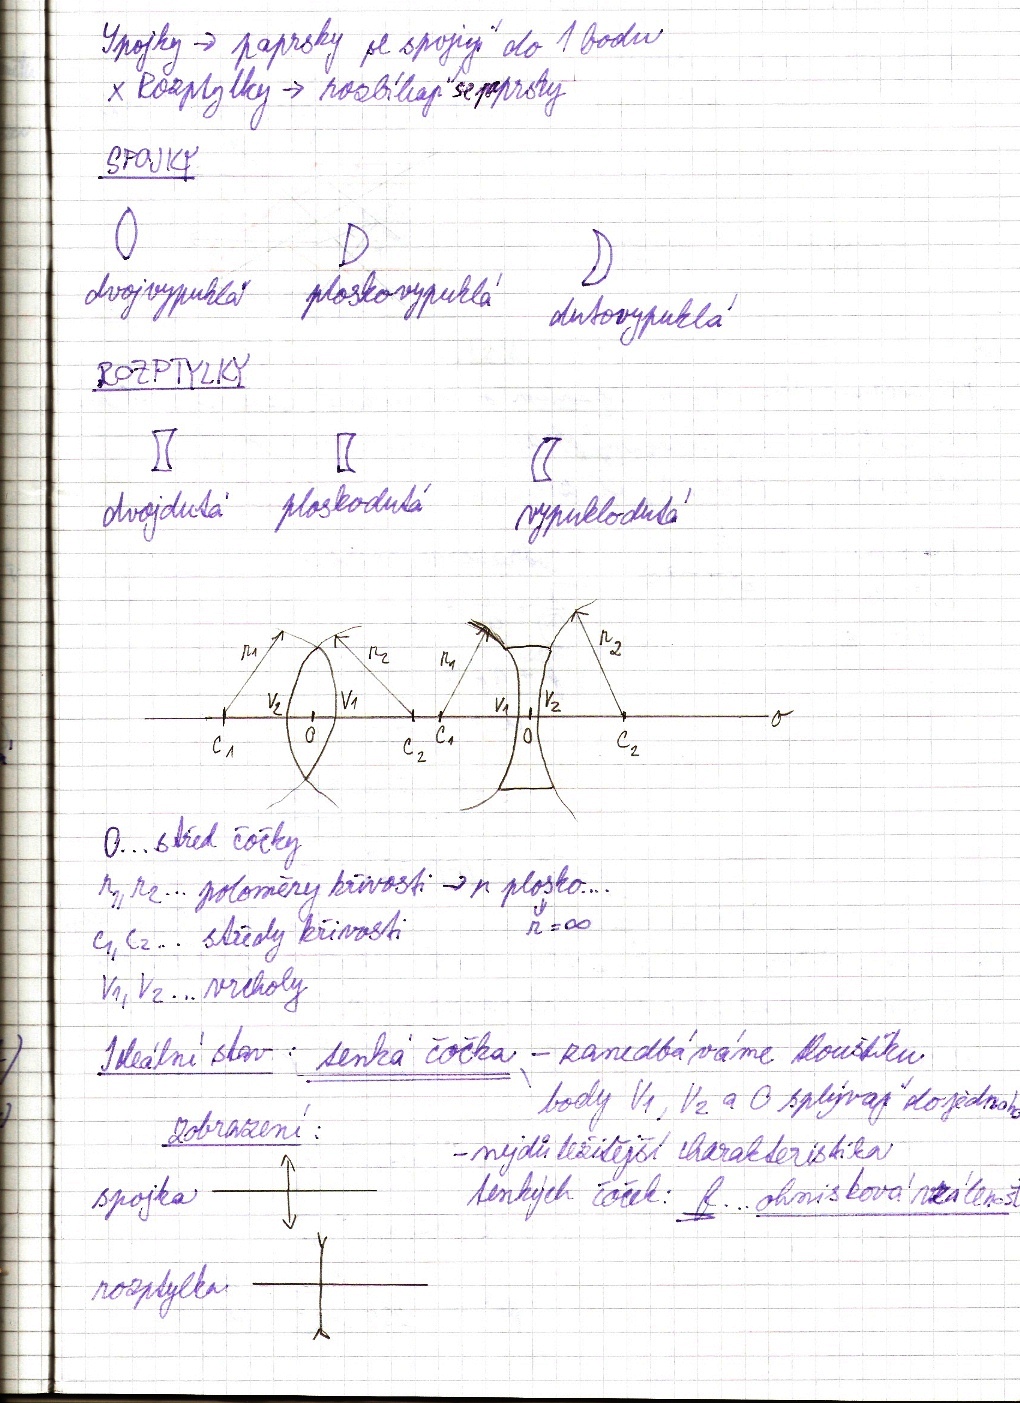 Spojky → paprsky se spojují do 1 bodu
x Rozptylky → rozbíhají se paprsky
SPOJKY
dvojvypuklá ploskovypuklá dutovypuklá
ROZPTYLKY
dvojdutá ploskodutá vypuklodutá
r1 r2 r1 r2
V2 V1 V1 V2
C1 O C2 C1 O C2 o
O... střed čočky
r1, r2... poloměry křivosti → u plosko....
r = ∞
C1, C2... středy křivosti
V1, V2... vrcholy
Ideální stav: tenká čočka – zanedbáváme tloušťku
body V1, V2 a O splývají do jednoho
zobrazení:
- nejdůležitější charakteristika
spojka tenkých čoček: f... ohnisková vzdálenost
rozptylka